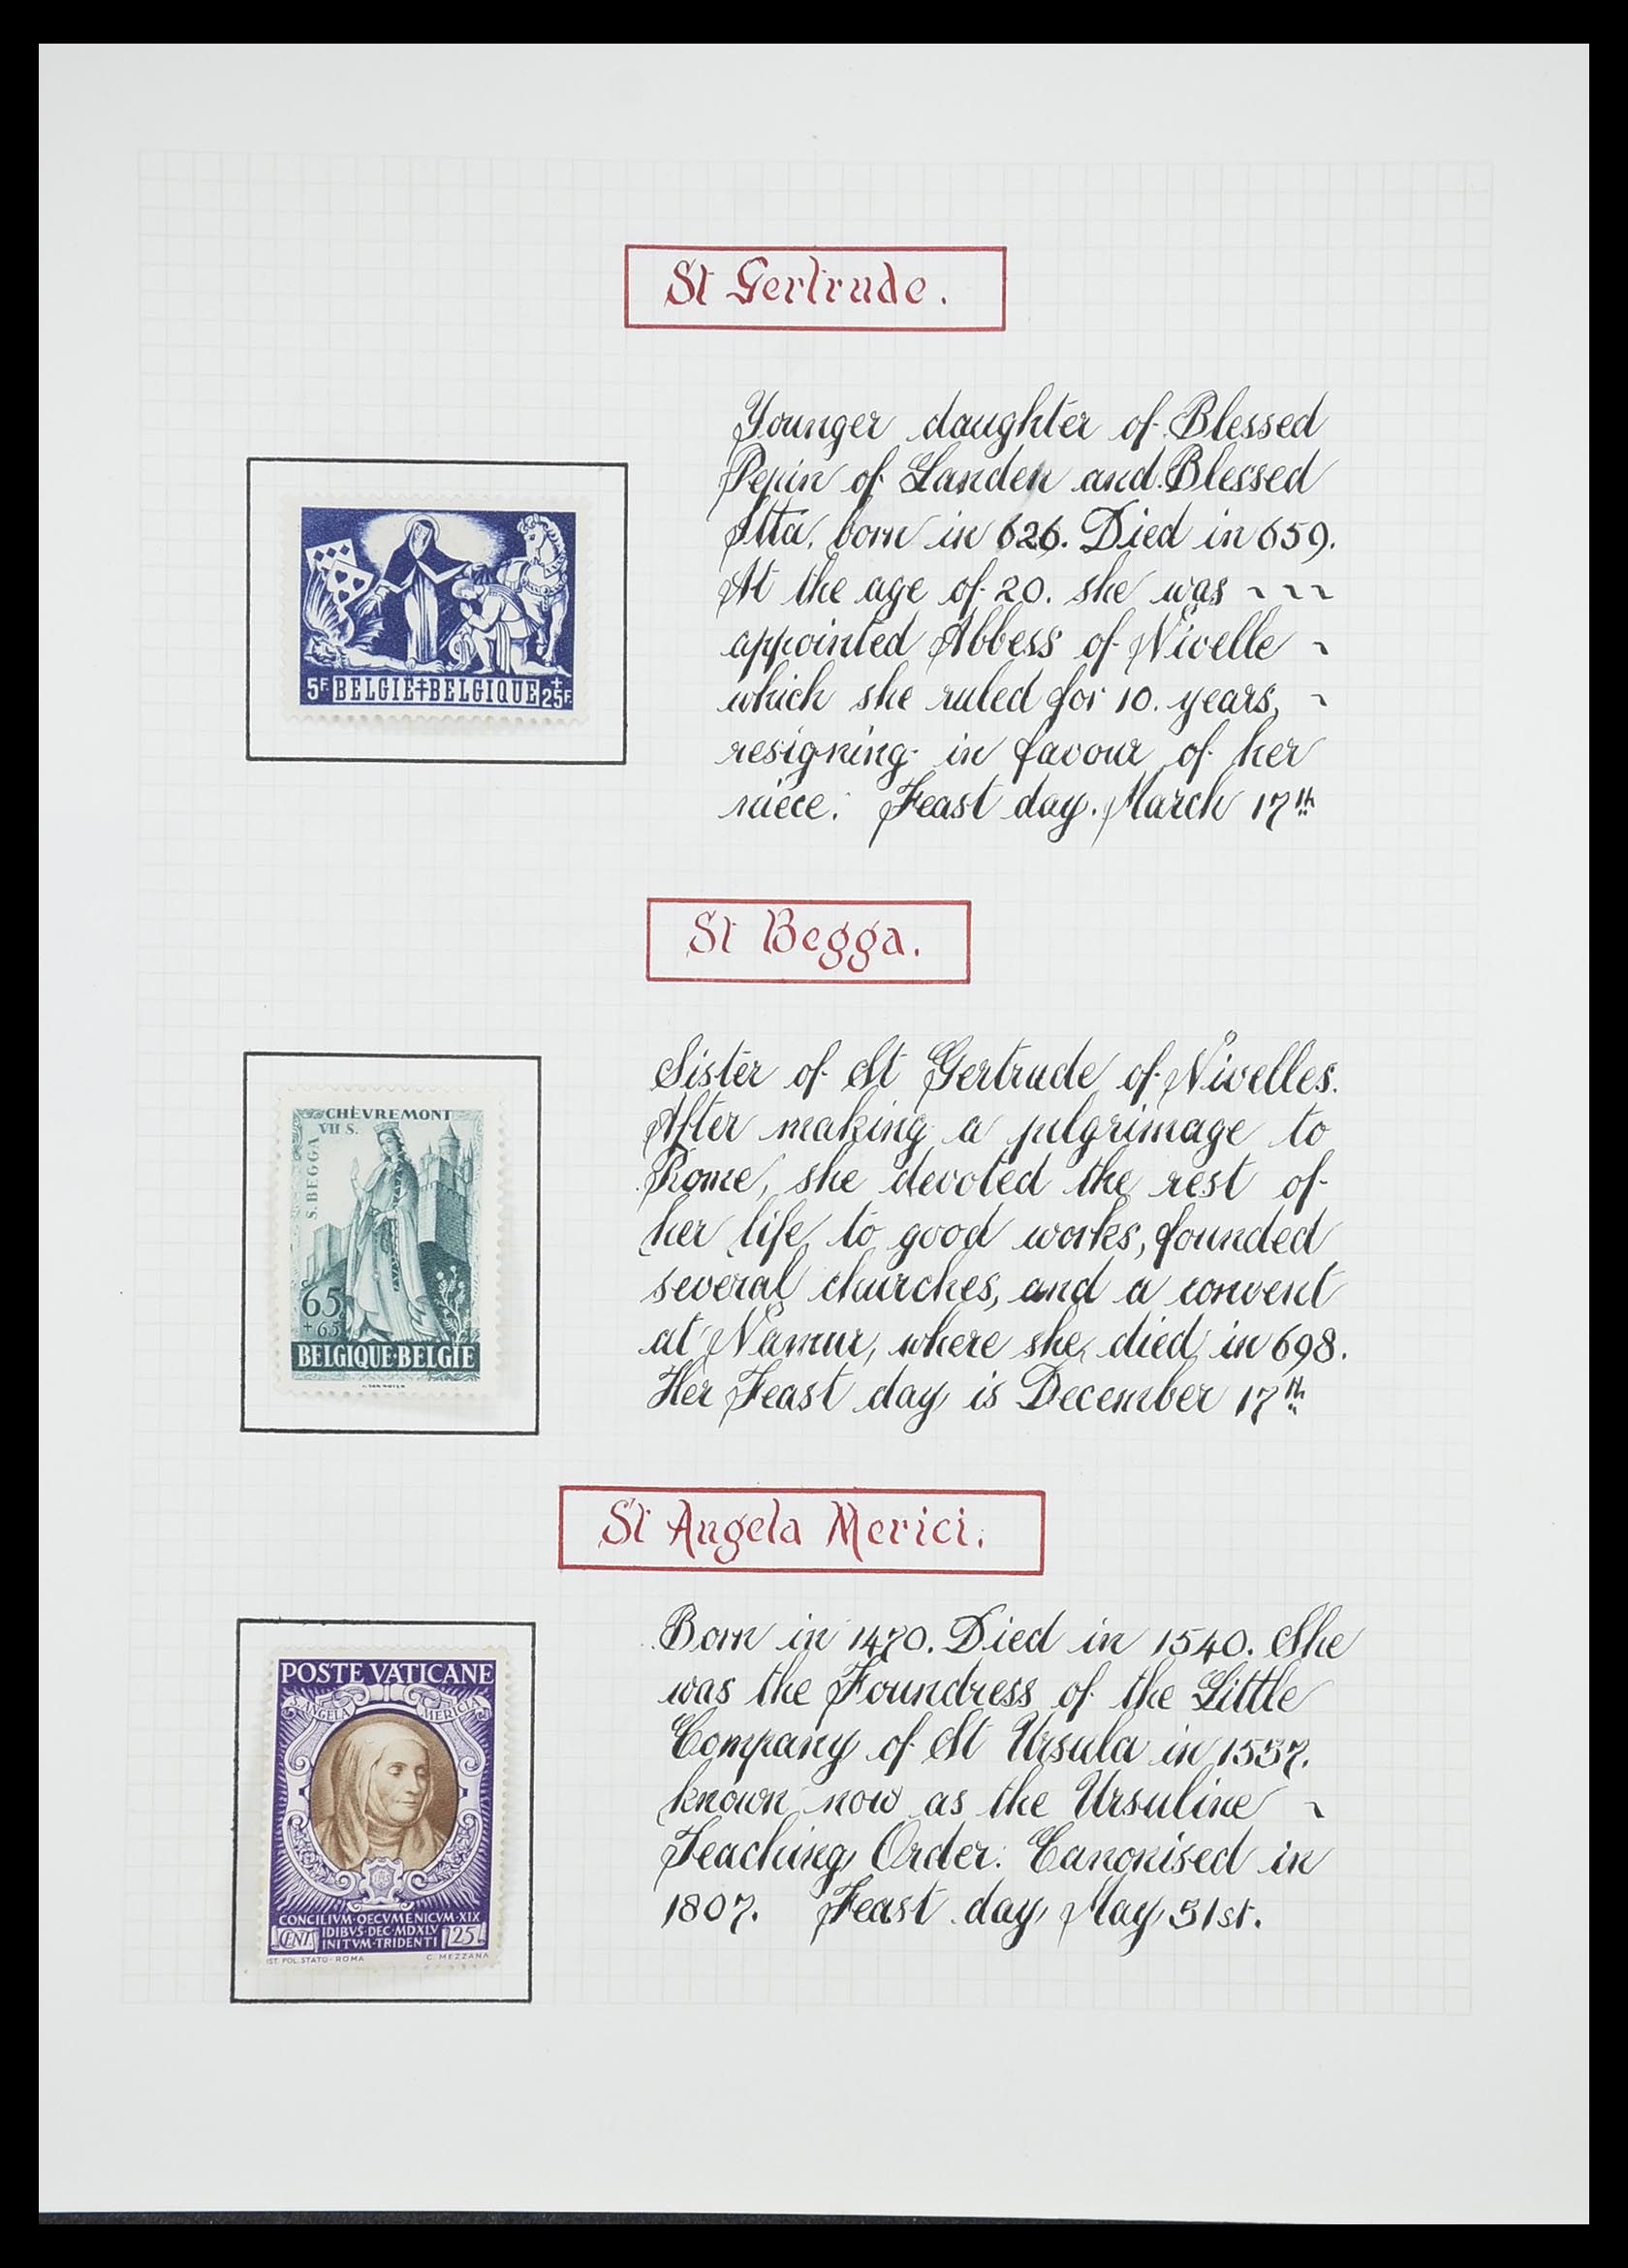 St Gertrude.
Younger daughter of Blessed
Pepin of Landen and Blessed
Itta, born in 626. Died in 659.
At the age of 20. she was ~ ~ ~
appointed Abbess of Nivelle ~
which she ruled for 10. years, ~
resigning in favour of her
niece. Feast day. March 17th
5F BELGIE+BELGIQUE +25F
St Begga.
Sister of St Gertrude of Nivelles.
After making a pilgrimage to
Rome, she devoted the rest of
her life to good works, founded
several churches, and a convent
at Namur, where she died in 698.
Her Feast day is December 17th
CHÈVREMONT
VII S.
S. BEGGA
65
+65
BELGIQUE·BELGIE
St Angela Merici.
Born in 1470. Died in 1540. She
was the Foundress of the Little
Company of St Ursula in 1537.
known now as the Ursuline ~
Teaching Order. Canonised in
1807. Feast day May 31st.
POSTE VATICANE
S. ANGELA MERICIA
CONCILIVM·OECVMENICVM·XIX
IDIBVS·DEC·MDXLV
CENT. INITVM·TRIDENTI 25
IST. POL. STATO-ROMA C. MEZZANA